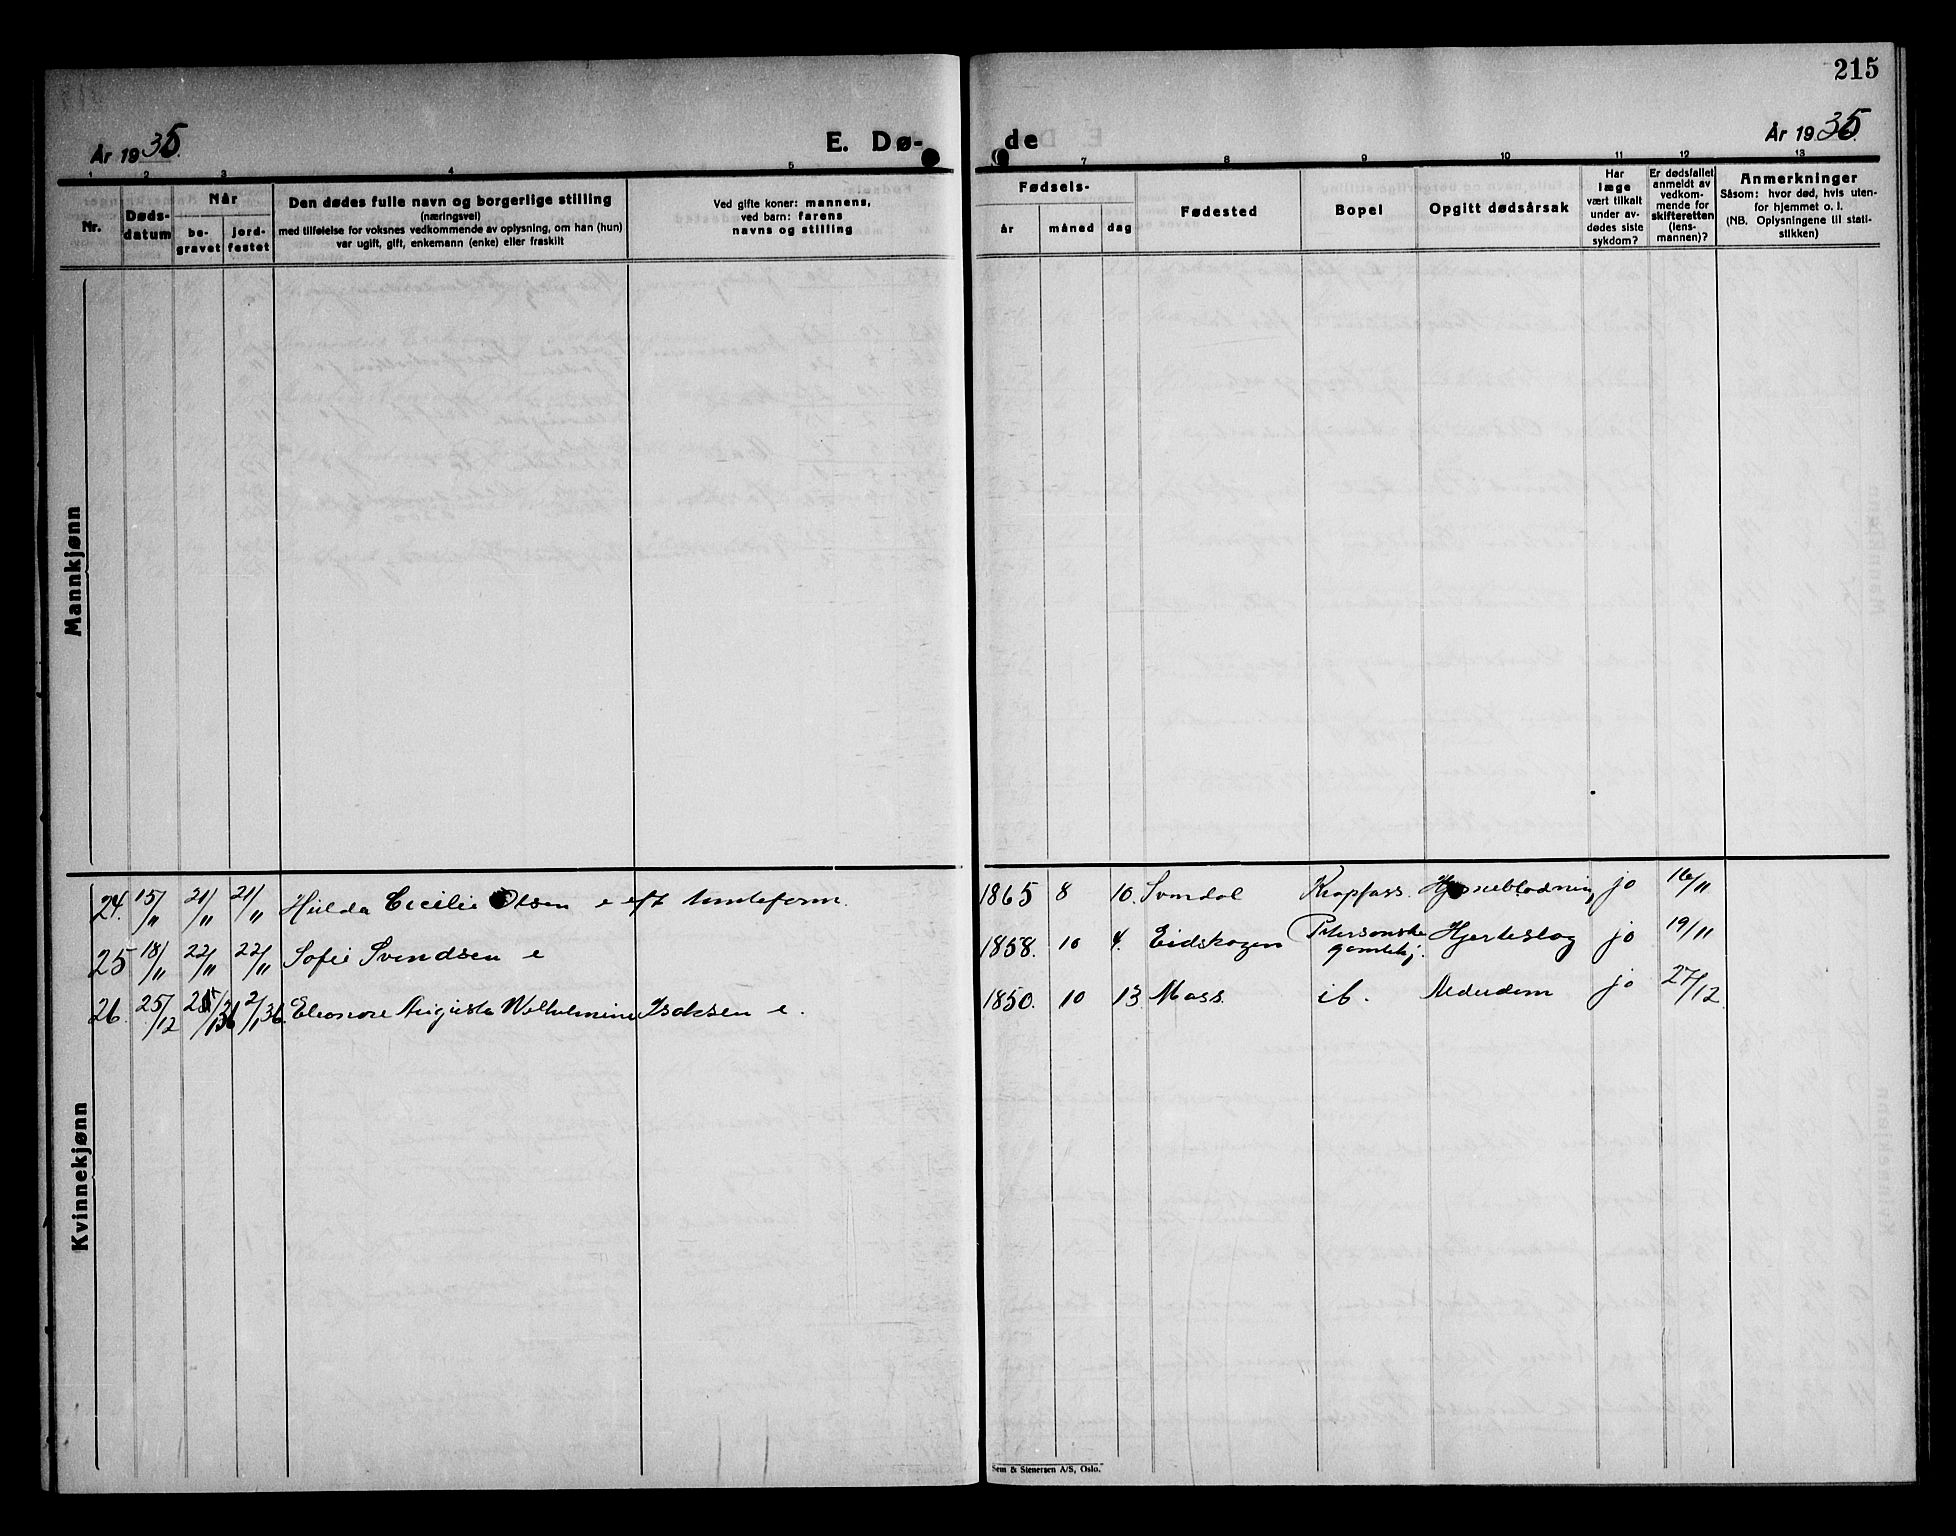 215
År 1935.
E. Dø-
de
År 1935.
1 2 3 4 5
7 8 9 10 11 12 13
Nr.
Døds-
datum
Når
be-
gravet
jord-
festet
Den dødes fulle navn og borgerlige stilling
(næringsvei)
med tilføielse for voksnes vedkommende av oplysning, om han (hun)
var ugift, gift, enkemann (enke) eller fraskilt
Ved gifte koner: mannens,
ved barn: farens
navns og stilling
Fødsels-
år
måned
dag
Fødested
Bopel
Opgitt dødsårsak
Har
læge
vært tilkalt
under av-
dødes siste
sykdom?
Er dødsfallet
anmeldt av
vedkom-
mende for
skifteretten
(lens-
mannen)?
Anmerkninger
Såsom: hvor død, hvis uten-
for hjemmet o. l.
(NB. Oplysningene til stati-
stikken)
Mannkjønn
Kvinnekjønn
24. 15/11 21/11 21/11 Hulda Cecilie Olsen e eft 1865 8 10. Svindal Kropfass. Hjerneblødning jo 16/11
25 18/11 22/11 22/11 Sofie Svendsen e 1858. 10 4. Eidskogen Petersonske gamlehj. Hjerteslag jo 19/11
26. 25/12 2/1 36. Eleonore Augusta Wilhelmine Isaksen e. 1850. 10 13 Moss. ib. Alderdom jo 27/12
Sem & Stenersen A/S, Oslo.